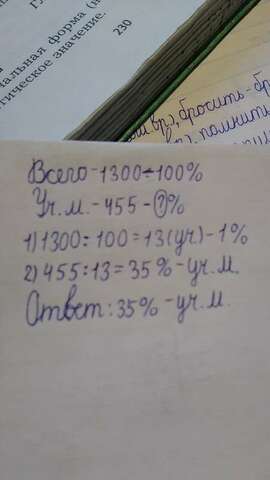 альная форма (н
тическое значение.
230
бросить-бр
помнить
Всего-1300÷100%
Уч.м.-455-?%
1)1300:100=13(уч.)-1%
2)455:13=35%-уч.м.
Ответ:35%-уч.м.